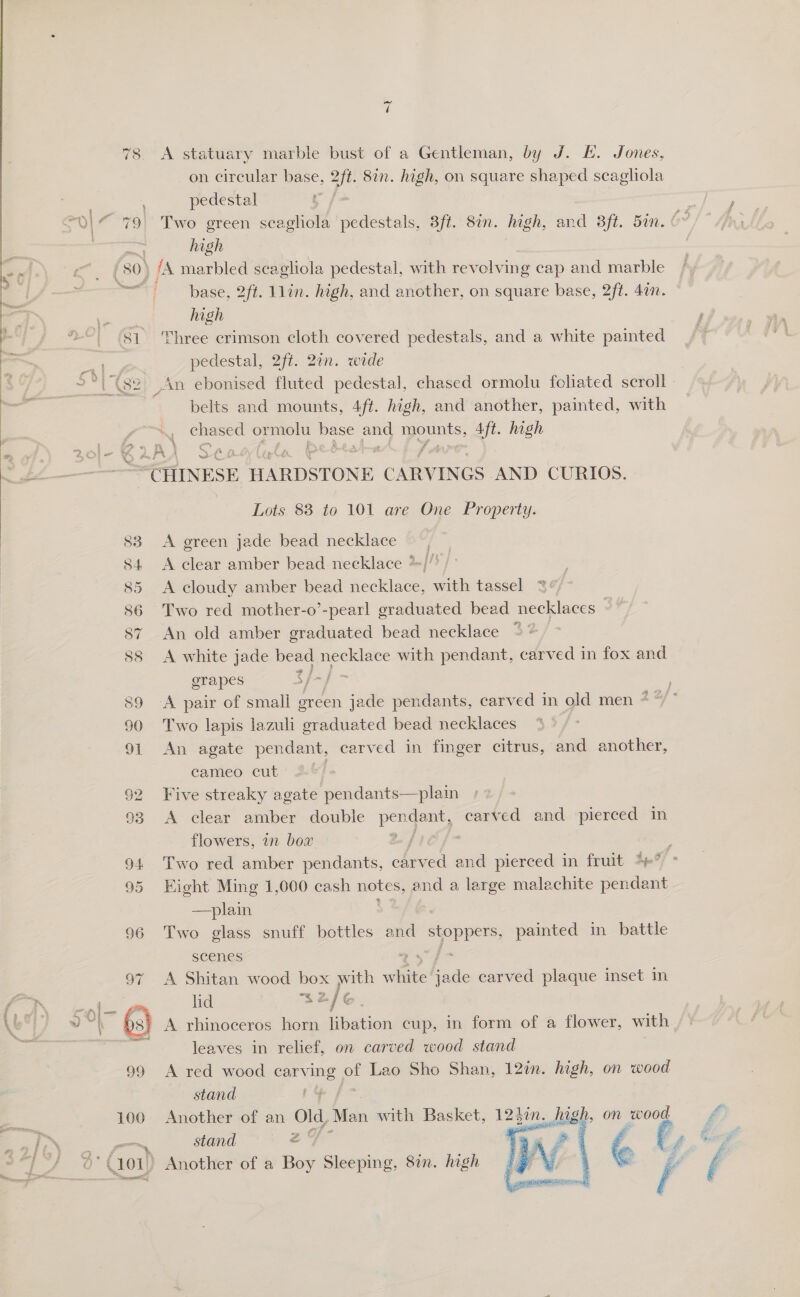 7
78 A statuary marble bust of a Gentleman, by J. E. Jones,
on circular base, 2ft. 8in. high, on square shaped scagliola
pedestal
79 Two green scagliola pedestals, 3ft. 8in. high, and 3ft. 5in.
high
80 A marbled scagliola pedestal, with revolving cap and marble
base, 2ft. 11in. high, and another, on square base, 2ft. 4in.
high
81 Three crimson cloth covered pedestals, and a white painted
pedestal, 2ft. 2in. wide
82 An ebonised fluted pedestal, chased ormolu foliated scroll
belts and mounts, 4ft. high, and another, painted, with
chased ormolu base and mounts, 4ft. high
82A
CHINESE HARDSTONE CARVINGS AND CURIOS.
Lots 83 to 101 are One Property.
83 A green jade bead necklace
84 A clear amber bead necklace
85 A cloudy amber bead necklace, with tassel
86 Two red mother-o'-pearl graduated bead necklaces
87 An old amber graduated bead necklace
88 A white jade bead necklace with pendant, carved in fox and
grapes 3/-/-
89 A pair of small green jade pendants, carved in old men
90 Two lapis lazuli graduated bead necklaces
91 An agate pendant, carved in finger citrus, and another,
cameo cut
92 Five streaky agate pendants—plain
93 A clear amber double pendant, carved and pierced in
flowers, in box
94 Two red amber pendants, carved and pierced in fruit
95 Eight Ming 1,000 cash notes, and a large malachite pendant
—plain
96 Two glass snuff bottles and stoppers, painted in battle
scenes
97 A Shitan wood box with white jade carved plaque inset in
lid 32/6
98 A rhinoceros horn libation cup, in form of a flower, with
leaves in relief, on carved wood stand
99 A red wood carving of Lao Sho Shan, 12in. high, on wood
stand
100 Another of an Old Man with Basket, 12½in. high, on wood
stand
101 Another of a Boy Sleeping, 8in. high